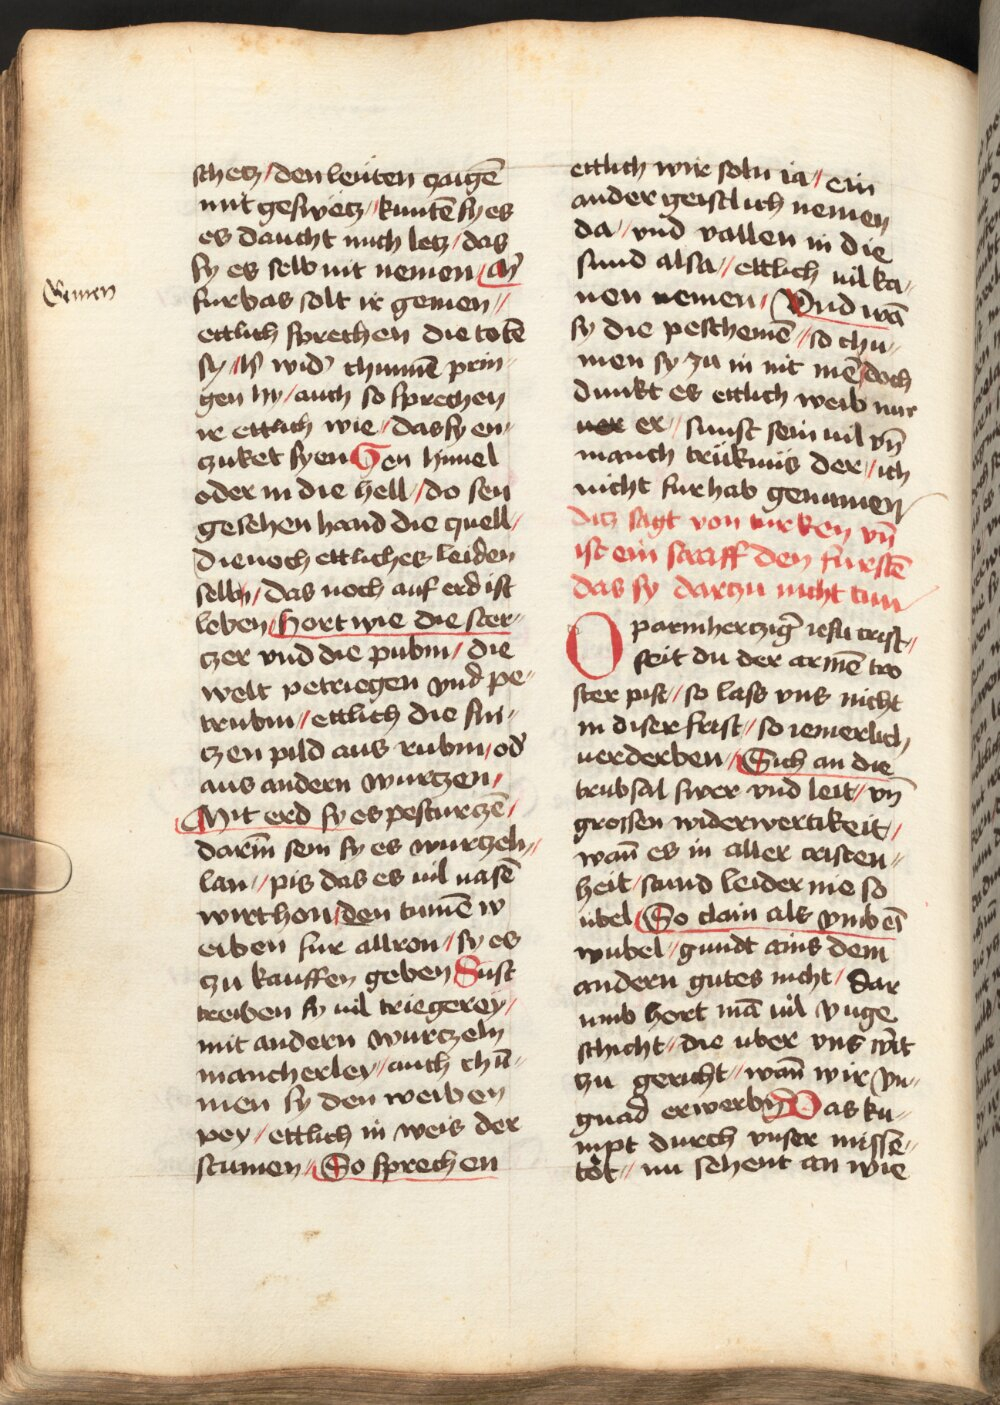 Gemen
schecz / den leüten zaigē
mit geswecz / kuntē sy es
es daucht mich lecz / das
sy es selb nit nemen /
furbas solt ir gemen //
ettlich sprechen die totē
sy / wid' chumē prin-
gen hy / auch so sprechen
ir ettlich wie / das sy en-
czuket syen Gen himel
oder in die hell / do sen
gesehen hand die quell /
die noch ettliches leiden
selbn / das noch auf erd ist
leben / hort wie die ster-
czer vnd die pubin / die
welt petriegen vnd pe-
trubin // ettlich die sni-
czen pild aus rubin / od'
aus andern wurczen /
Mit erd sy es pesturczē /
darin̄ sein sy es wurczeln //
lan // pis das es uil uasē
wirt hon / den tumē w
eiben fur allron / sy es
czu kauffen geben Sust
treiben sy uil triegerey /
mit andern wurczeln
mancherley / auch chū-
men sy den weiben
pey / ettlich in weis der
stumen // So sprechen
ettlich wir soln ia // ein
ander geistlich nemen
da / vnd vallen in die
sund alsa // ettlich uil ka-
nen nemen / Vnd wā
sy die peschemē // so chu-
men sy zu in nit mē doch
dunkt es ettlich weib nur
er // sunst sein uil vn̄
manch trüknüs der // ich
nicht fur hab genumen
dicz sagt von turken vn̄
ist ein straff den furstē
das sy darczu nicht tun
O parmhercziḡ iesu crist /
seit du der armē tro
ster pist / so lass vns nicht
in diser frist / so iemerlich
uerderben // Sich an die
trubsal swer vnd leit / vn̄
grossen widerwertikeit /
wan̄ es in aller cristen //
heit / stund leider nie so
übel / So clain als vmb eī
wubel / gundt ains dem
andern gutes nicht / dar
umb hort mā uil vnge
schicht / die uber vns wīt
czu gericht // wan̄ wir vn-
gnad erwerbn̄ Das ku-
mpt durch vnser missē-
töt // nu sehent an wie